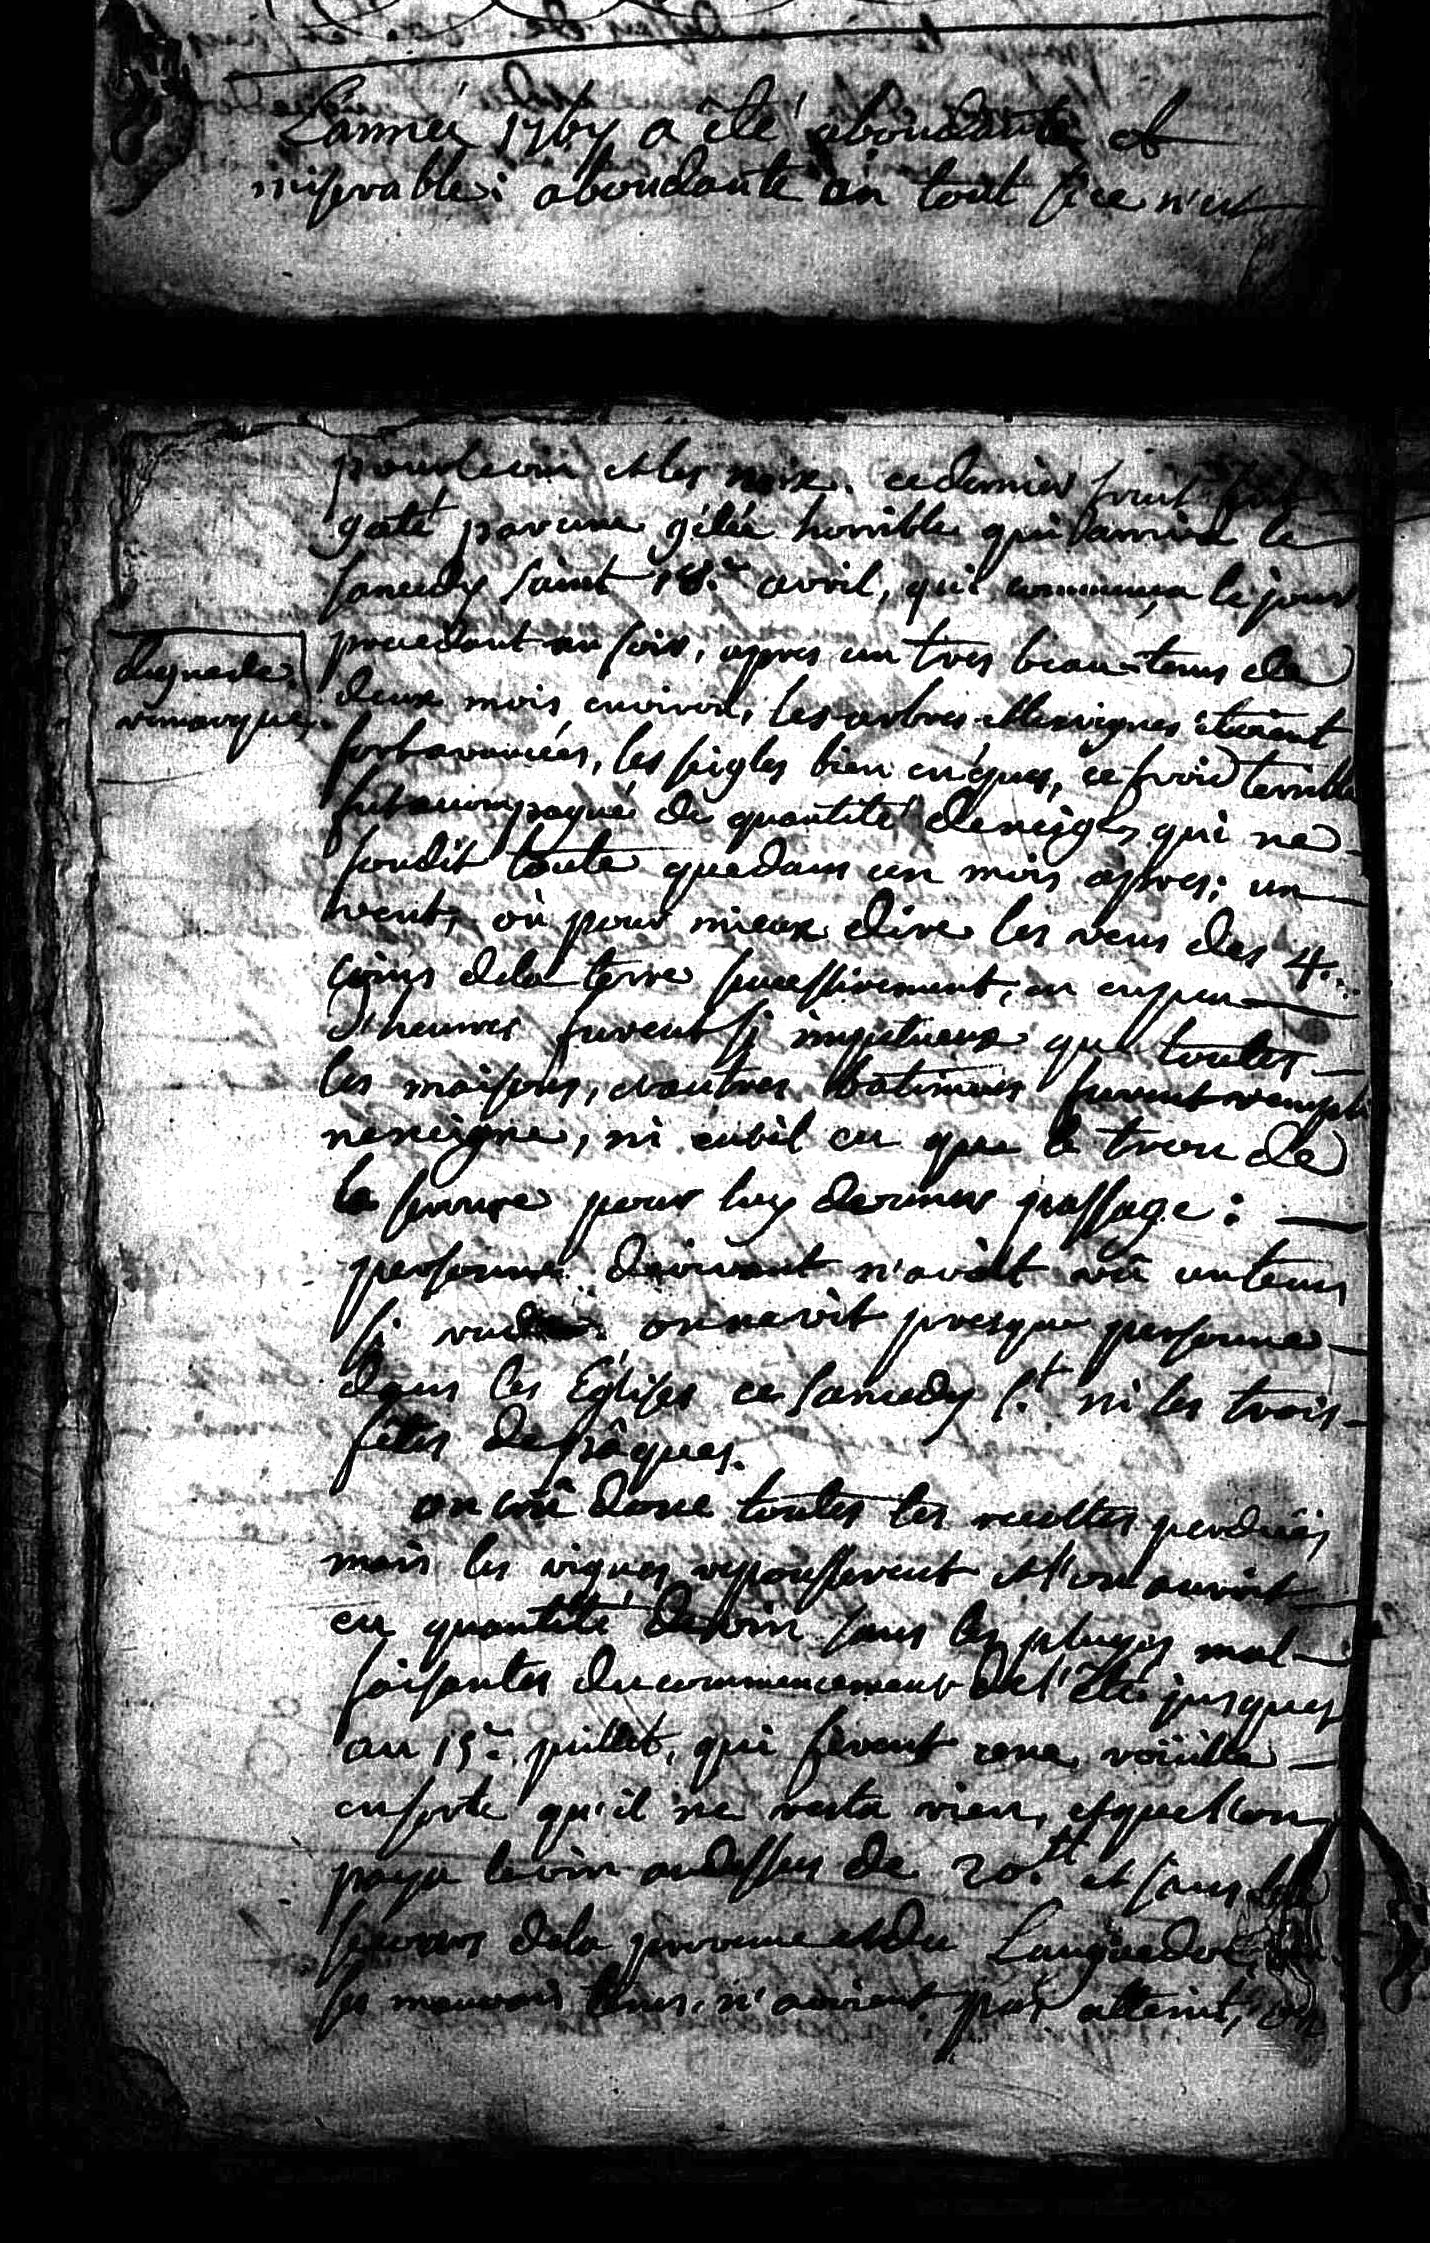 L'année 1767 a êté abondante et
miserable: abondante en tout si ce n'est
pour le vin et les noix. ce dernier fruit fut
gâté par une gélée horrible qui arriva le
samedy saint 18.e avril, qui commença le jour
precedant au soir, apres un tres beau tems de
deux mois environ, les arbres et les vignes étoient
fort avancées, les seigles bien en épies, ce froid terrible
fut accompagné de quantité de neiges qui ne
fondit toute que dans un mois apres; un
vent, où pour mieux dire les vens des 4.
coins de la terre successivement, en peu
d'heures furent si impetueux que toutes
les maisons, et autres bâtimens furent rempli
de neigne, ni eut il eu que le trou de
la serrure pour luy donner passage:
personne de vivant n'avoit vû un tems
si rude on ne vit presque personne
dans les Eglises ce samedy s.t ni les trois
fêtes de pâques.
on crû donc toutes les recoltes perduës
mais les vignes repousserent et l'on auroit
eu quantité de vin sans les pluyes mal
faisantes du commencement de l'Eté jusques
au 15.e juillet, qui firent
en sorte qu'il ne resta rien, et que l'on
paya le vin au dessus de 20.tt et sans les
secours de la provence et du Languedoc,
le mauvais tems n'avoient pas atteint, on
digne de
remarque,